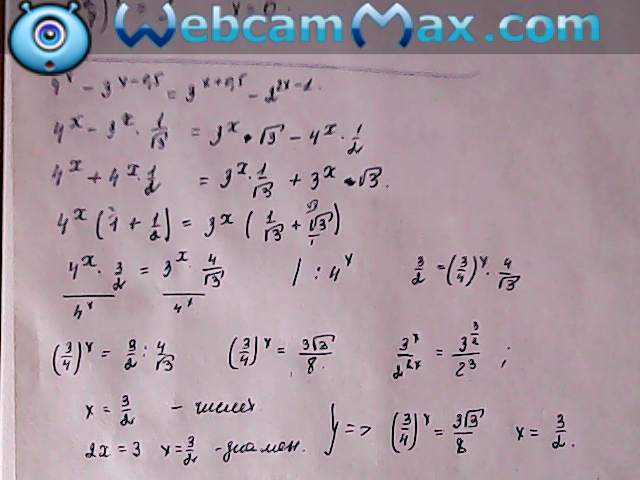 WebcamMax.com
x = 0
- 3^(x-0,5) = 3^(x+0,5) - 2^(2x-1).
4^x - 3^x · 1/√3 = 3^x · √3 - 4^x · 1/2
4^x + 4^x · 1/2 = 3^x · 1/√3 + 3^x · √3.
4^x (1 + 1/2) = 3^x (1/√3 + √3/1)
4^x · 3/2 / 4^x = 3^x · 4/√3 / 4^x | : 4^x 3/2 = (3/4)^x · 4/√3
(3/4)^x = 3/2 : 4/√3 (3/4)^x = 3√3/8. 3^x/2^(2x) = 3^(3/2)/2^3 ;
x = 3/2 - числит
2x = 3 x = 3/2 - знамен. } => (3/4)^x = 3√3/8 x = 3/2.